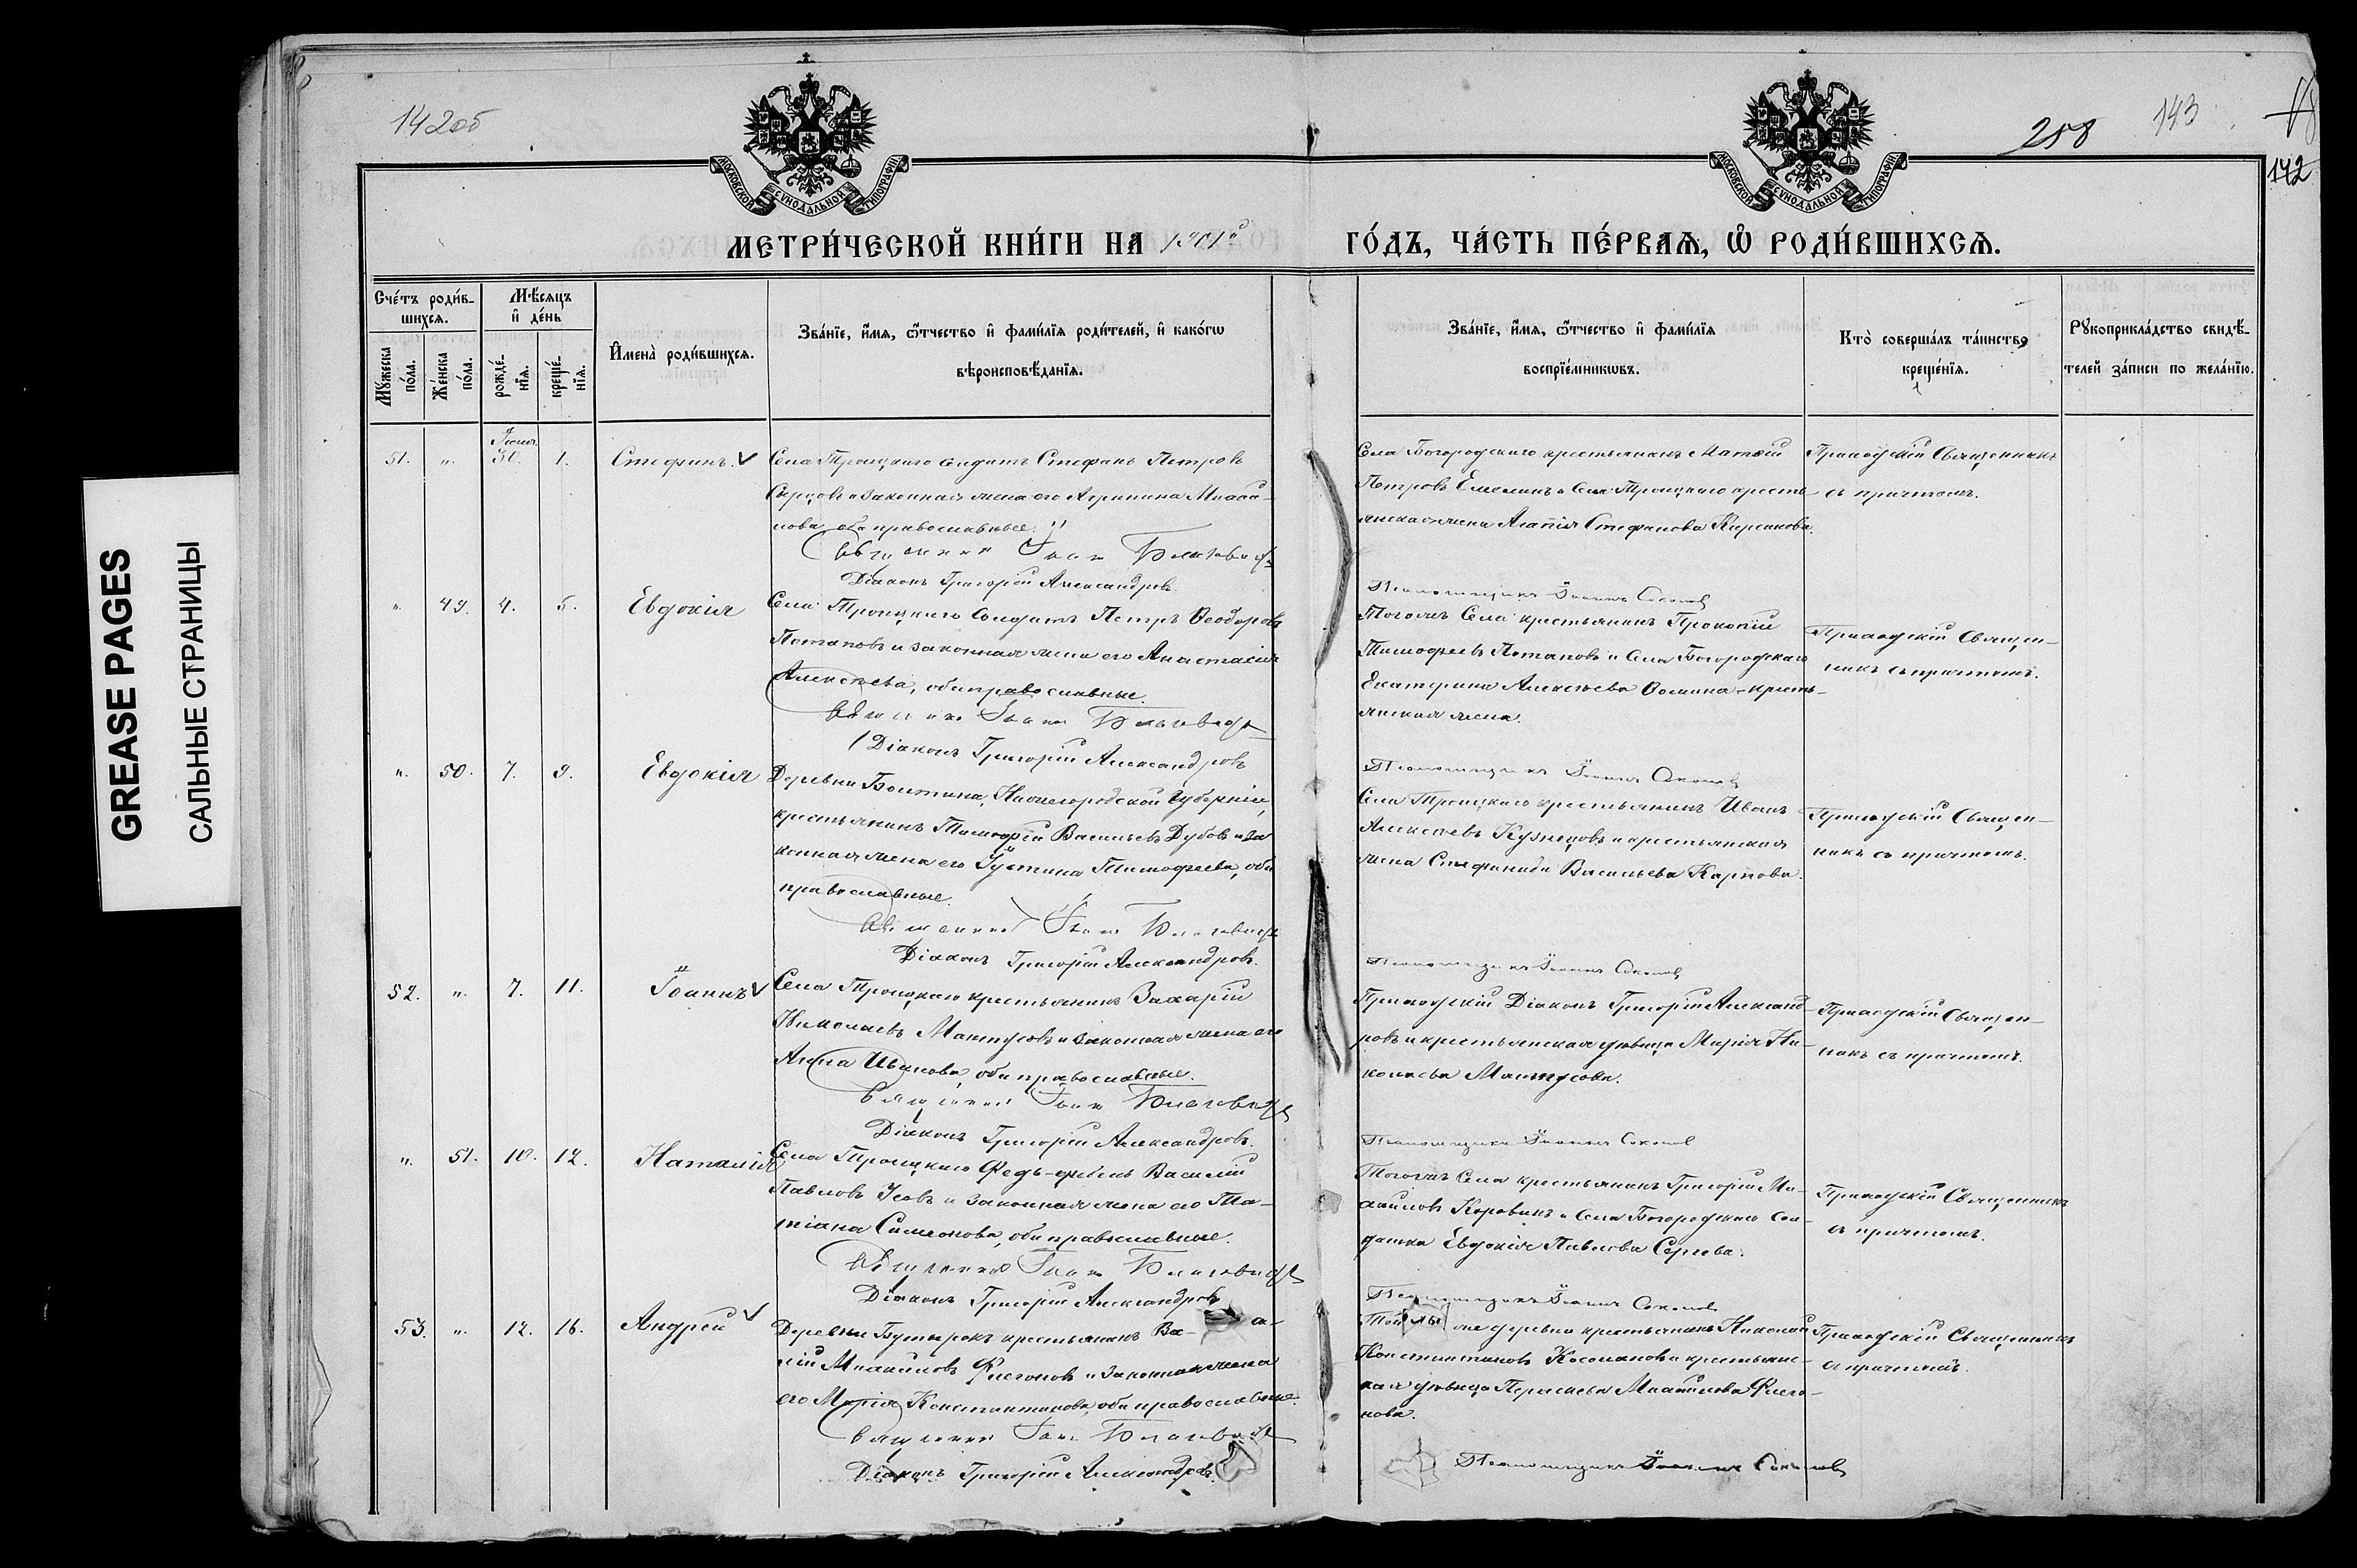 GREASE PAGES
САЛЬНЫЕ СТРАНИЦЫ
142об
258
143
142
МОСКОВСКОЙ СУНОДАЛЬНОЙ ТИПОГРАФІИ
МОСКОВСКОЙ СУНОДАЛЬНОЙ ТИПОГРАФІИ
МЕТРИ́ЧЕСКОЙ КНИ́ГИ НА 1901й ГО́ДЪ, ЧА́СТЬ ПЕ́РВАѦ, Ѡ҆ РОДИ́ВШИХСѦ.
Сче́тъ роди́вшихсѧ.
Мꙋ́жеска по́ла.
Же́нска по́ла.
Мѣ́сѧцъ и҆ де́нь
рожде́нїѧ.
креще́нїѧ.
И҆мена̀ роди́вшихсѧ.
Зва́нїе, и҆́мѧ, ѻ҆́тчество и҆ фами́лїѧ роди́телей, и҆ како́гѡ
вѣроисповѣ́данїѧ.
Зва́нїе, и҆́мѧ, ѻ҆́тчество и҆ фами́лїѧ
воспрїе́мникѡвъ.
Кто̀ соверша́лъ та́инство
креще́нїѧ.
Рꙋкоприкла́дство свидѣ́-
телей за́писи по жела́нїю.
51. „ 30. 1. Стефанъ.
Села Троицкаго солдатъ Стефанъ Петровъ
законная жена его Агрипина Михай-
лова, оба православные.
Священникъ Іоаннъ
Діаконъ Григорій Александровъ.
Села Богородскаго крестьянинъ Матѳій
Петровъ Емелинъ и Села Троицкаго кресть-
янская жена Агапія Стефанова
Псаломщикъ Іоаннъ Соколовъ
Приходскій Священникъ
съ причтомъ.
„ 49. 4. 5. Евдокія
Села Троицкаго Солдатъ Петръ Ѳеодоровъ
Потаповъ и законная жена его Анастасія
Алексѣева, оба православные.
Священникъ Іоаннъ
Діаконъ Григорій Александровъ
Тогоже Села крестьянинъ Прокопій
Тимофеевъ Потаповъ и Села Богородскаго
Екатерина Алексѣева Ѳомина - кресть-
янская жена.
Псаломщикъ Іоаннъ Соколовъ
Приходскій Священ-
никъ съ причтомъ.
„ 50. 7. 9. Евдокія
Деревни Болтина, Нижегородской Губерніи,
крестьянинъ Тимофей Васильевъ Дубовъ и за-
конная жена его Іустина Тимофеева, оба
православные.
Священникъ Іоаннъ
Діаконъ Григорій Александровъ.
Села Троицкаго крестьянинъ Иванъ
Алексѣевъ Кузнецовъ и крестьянская
жена Стефанида Васильева Карпова.
Псаломщикъ Іоаннъ Соколовъ
Приходскій Священ-
никъ съ причтомъ.
52. „ 7. 11. Іоаннъ
Села Троицкаго крестьянинъ Захарій
Николаевъ Мантусовъ и законная жена его
Анна Иванова, оба православные.
Священникъ Іоаннъ
Діаконъ Григорій Александровъ.
Приходскій Діаконъ Григорій Александ-
ровъ и крестьянская дѣвица Марія Ни-
колаева Мантусова.
Псаломщикъ Іоаннъ Соколовъ
Приходскій Священ-
никъ съ причтомъ.
„ 51. 10. 12. Наталія
Села Троицкаго Фельдфебель Василій
Павловъ Усовъ и законная жена его Та-
тіана Симеонова, оба православные.
Священникъ Іоаннъ
Діаконъ Григорій Александровъ
Тогоже Села крестьянинъ Григорій Ми-
хайловъ Коровинъ и Села Богородскаго сол-
датка Евдокія Павлова Сергева.
Псаломщикъ Іоаннъ Соколовъ
Приходскій Священникъ
съ причтомъ.
53. „ 12. 16. Андрей
Деревни Бутырокъ крестьянинъ Ва-
лій Михайловъ Флегоновъ и законная жена
его Марія Константинова, оба православные.
Священникъ Іоаннъ
Діаконъ Григорій Александровъ.
же деревни крестьянинъ Николай
Константиновъ и крестьянс-
кая дѣвица Михайлова Флего-
нова.
Псаломщикъ Іоаннъ Соколовъ
Приходскій Священникъ
съ причтомъ.